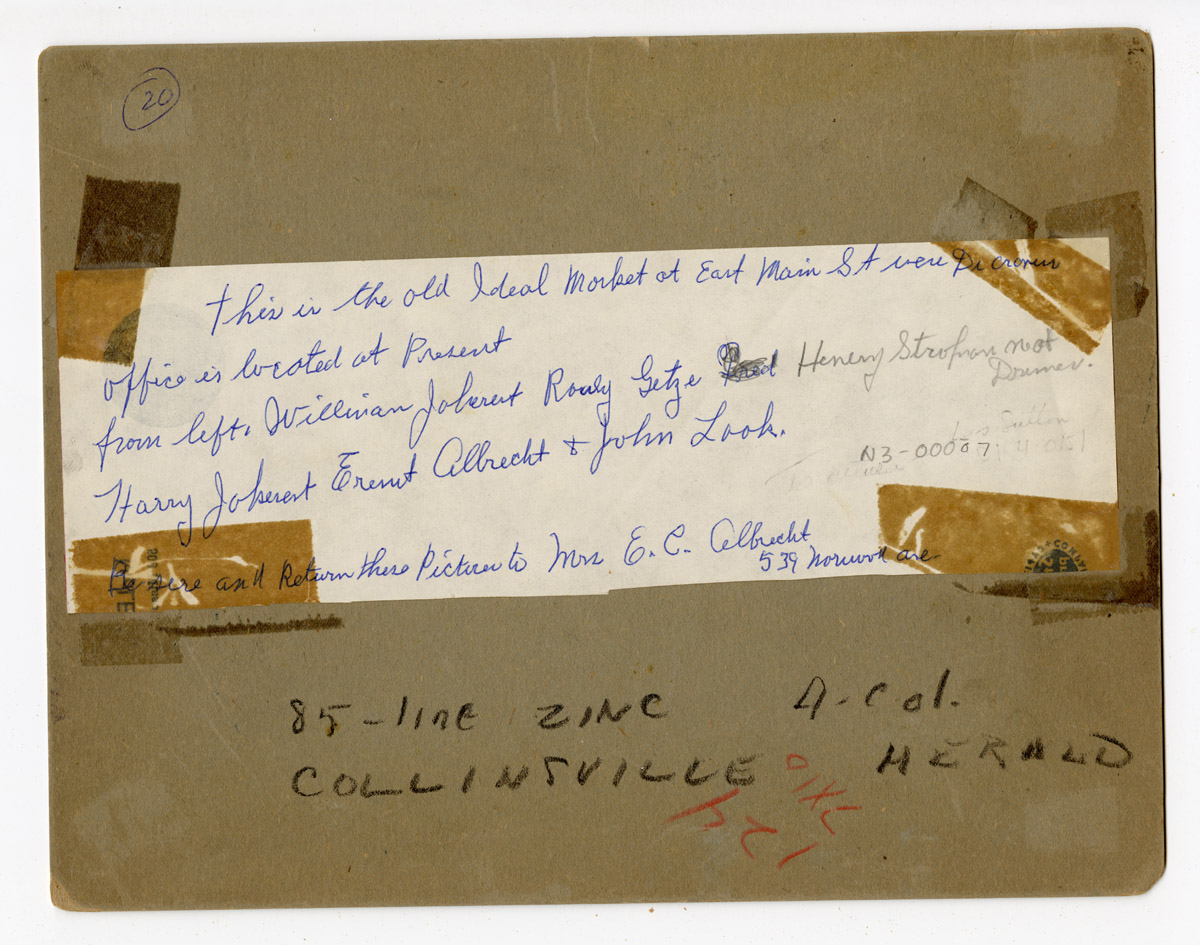 20
This is the old Ideal Market at East Main St were
office is located at Present
from left. Willinian Jokerst Rouly Getze Henery Strofman not
Drumer.
Harry Jokerst Erenst Albrecht & John Look.
N3-00007
and Return these Pictures to Mrs E. C. Albrecht
539 Norwood ave
85-line ZINC 4-Col.
COLLINSVILLE HERALD